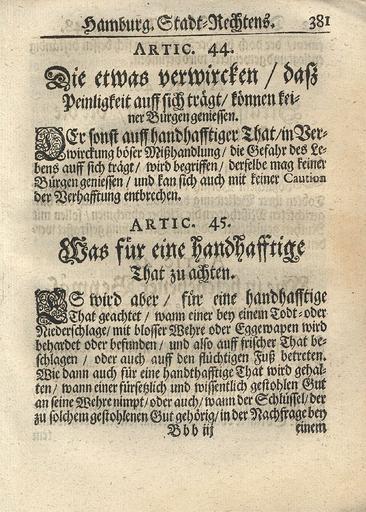 Hamburg. Stadt-Rechtens. 381
ARTIC. 44.
Die etwas verwircken / daß
Peinligkeit auff sich trägt / können kei-
ner Bürgen geniessen.
DEr sonst auff handhafftiger That / in Ver-
wirckung böser Mißhandlung / die Gefahr des Le-
bens auff sich trägt / wird begriffen / derselbe mag keiner
Bürgen geniessen / und kan sich auch mit keiner Caution
der Verhafftung entbrechen.
ARTIC. 45.
Was für eine handhafftige
That zu achten.
ES wird aber / für eine handhafftige
That geachtet / wann einer bey einem Todt- oder
Niederschlage / mit blosser Wehre oder Eggewapen wird
behardet oder befunden / und also auff frischer That be-
schlagen / oder auch auff den flüchtigen Fuß betreten.
Wie dann auch für eine handthafftige That wird gehal-
ten / wann einer fürsetzlich und wissentlich gestohlen Gut
an seine Wehre nimpt / oder auch / wann der Schlüssel / der
zu solchem gestohlenen Gut gehörig / in der Nachfrage bey
Bbb iij einem